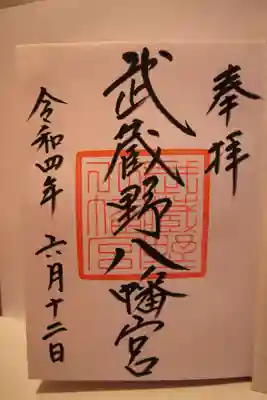 奉拝
武蔵野八幡宮
令和四年 六月十二日